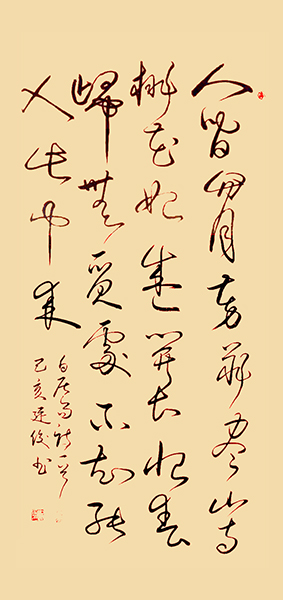 人間四月芳菲盡山寺
桃花始盛開長恨春
歸無覓處不知轉
入此中來
白居易詩一首
己亥書